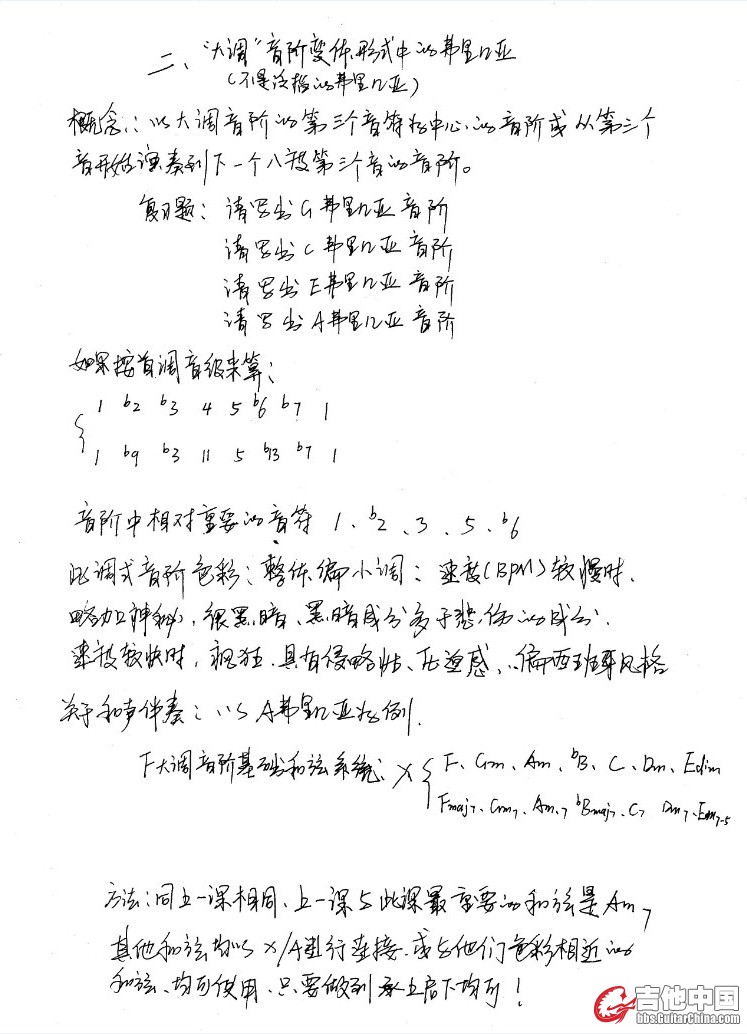 二、“大调”音阶变体形式中的弗里几亚
(不是泛指的弗里几亚)
概念：以大调音阶的第三个音符为中心的音阶或从第三个
音开始演奏到下一个八度第三个音的音阶。
复习题：请写出G弗里几亚音阶
请写出C弗里几亚音阶
请写出E弗里几亚音阶
请写出A弗里几亚音阶
如果按首调音级来算：
1 b2 b3 4 5 b6 b7 1
1 b9 b3 11 5 b13 b7 1
音阶中相对重要的音符 1、b2、3、5、b6
此调式音阶色彩：整体偏小调：速度(BPM)较慢时.
略加神秘,很黑暗、黑暗成分多于悲伤的成分.
速度较快时,疯狂.具有侵略性、压迫感.偏西班牙风格
关于和声伴奏：以A弗里几亚为例.
F大调音阶基础和弦系统: X { F、Gm、Am、bB、C、Dm、Edim
Fmaj7、Gm7、Am7、bBmaj7、C7 Dm7、Em7-5
方法：同上一课相同、上一课与此课最重要的和弦是Am7
其他和弦均以X/A进行连接.或与他们色彩相近的
和弦、均可使用.只要做到承上启下均可！
吉他中国
bbs.GuitarChina.com